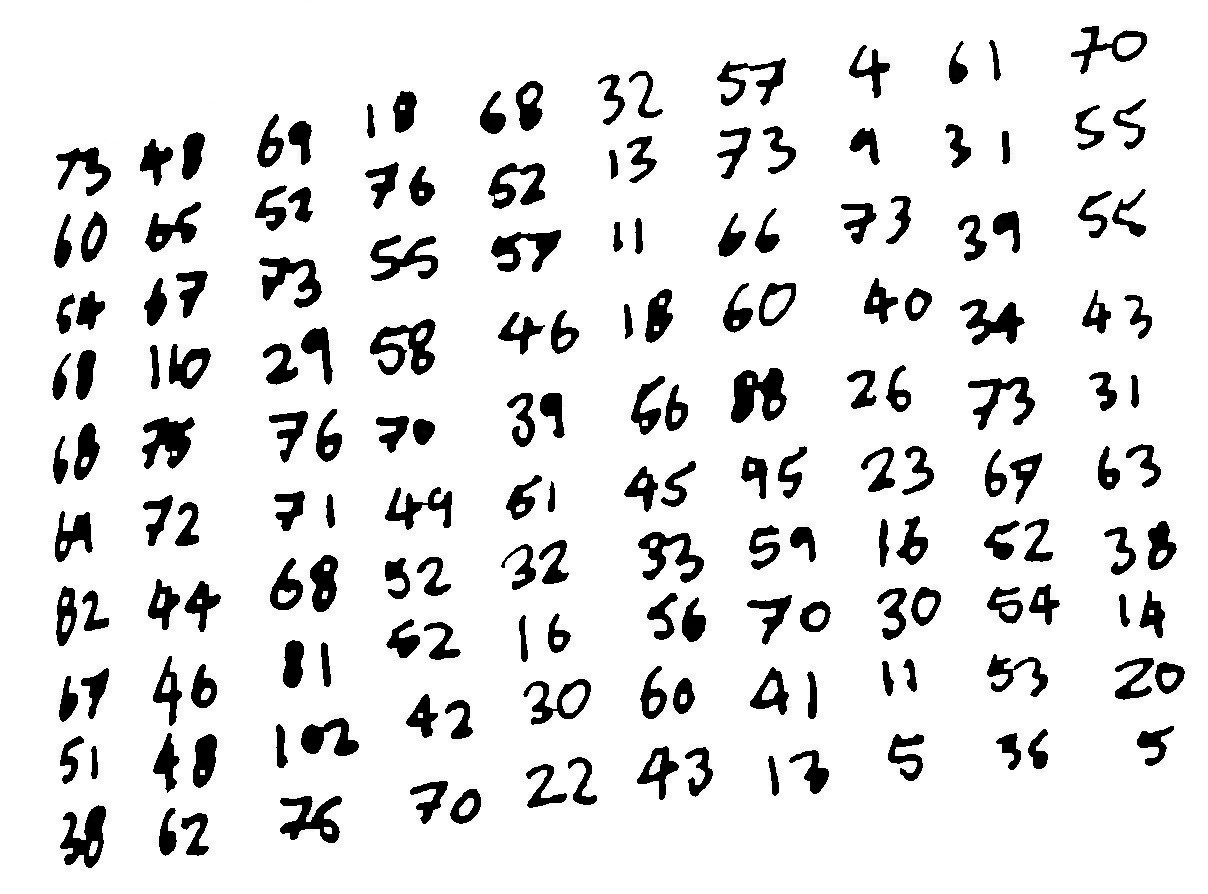 73 48 69 18 68 32 57 4 61 70
60 65 52 76 52 13 73 9 31 55
54 67 73 55 57 11 66 73 39 55
68 110 29 58 46 18 60 40 34 43
68 75 76 70 39 56 88 26 73 31
69 72 71 49 51 45 95 23 67 63
82 44 68 52 32 33 59 16 52 38
67 46 81 52 16 56 70 30 54 14
51 48 102 42 30 60 41 11 53 20
38 62 76 70 22 43 13 5 36 5